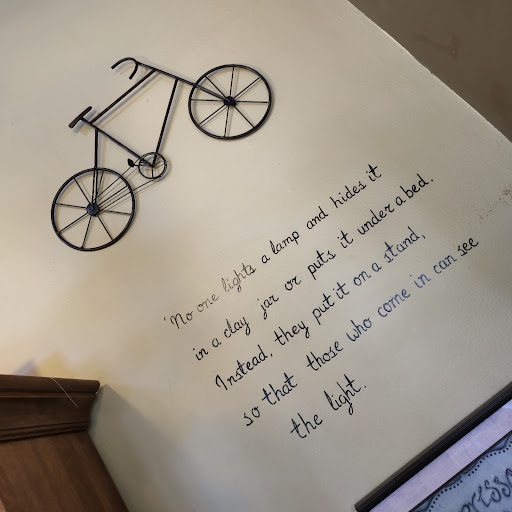 'No one lights a lamp and hides it
in a clay jar or puts it under a bed.
Instead, they put it on a stand,
so that those who come in can see
the light.